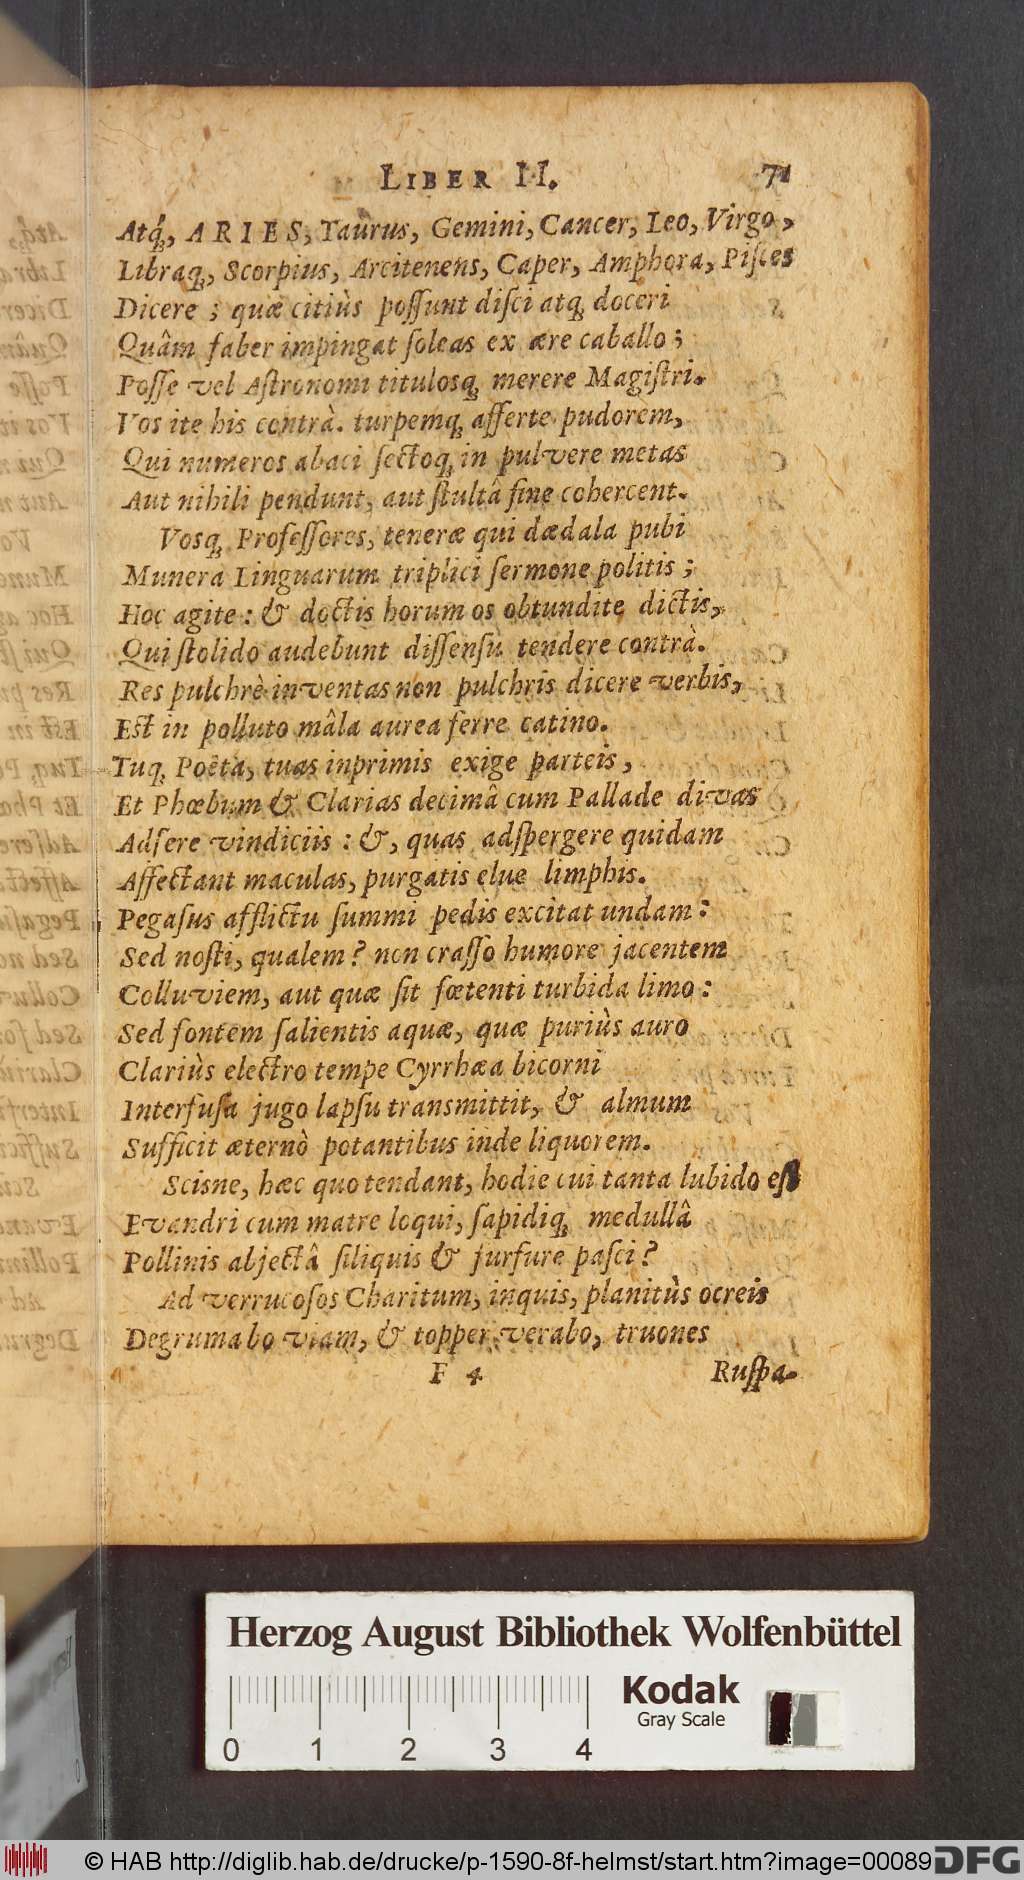 LIBER II. 71
Atq́;, ARIES, Taurus, Gemini, Cancer, Leo, Virgo,
Libraq;, Scorpius, Arcitenens, Caper, Amphora, Piſces
Dicere; quæ citiùs poſſunt diſci atq; doceri
Quâm faber impingat ſoleas ex ære caballo;
Poſſe vel Aſtronomi titulosq; merere Magiſtri.
Vos ite his contrà. turpemq; afferte pudorem,
Qui numeros abaci ſectoq; in pulvere metas
Aut nihili pendunt, aut ſtultâ fine cohercent.
Vosq; Profeſſores, teneræ qui dædala pubi
Munera Linguarum triplici ſermone politis;
Hoc agite: & doctis horum os obtundite dictis,
Qui ſtolido audebunt diſſenſu tendere contrà.
Res pulchrè inventas non pulchris dicere verbis,
Eſt in polluto mâla aurea ferre catino.
Tuq; Poëta, tuas inprimis exige parteis,
Et Phœbum & Clarias decimâ cum Pallade divas
Adſere vindiciis: &, quas adſpergere quidam
Affectant maculas, purgatis elue limphis.
Pegaſus afflictu ſummi pedis excitat undam:
Sed noſti, qualem? non craſſo humore jacentem
Colluviem, aut quæ ſit fœtenti turbida limo:
Sed fontem ſalientis aquæ, quæ puriùs auro
Clariùs electro tempe Cyrrhæa bicorni
Interfuſa jugo lapſu transmittit, & almum
Sufficit æternò potantibus inde liquorem.
Scisne, hæc quo tendant, hodie cui tanta lubido eſt
Evandri cum matre loqui, ſapidiq; medullâ
Pollinis abjectâ ſiliquis & furfure paſci?
Ad verrucoſos Charitum, inquis, planitùs ocreis
Degrumabo viam, & topper verabo, truones
F 4 Ruſpa-
Herzog August Bibliothek Wolfenbüttel
Kodak
Gray Scale
0 1 2 3 4
© HAB http://diglib.hab.de/drucke/p-1590-8f-helmst/start.htm?image=00089 DFG